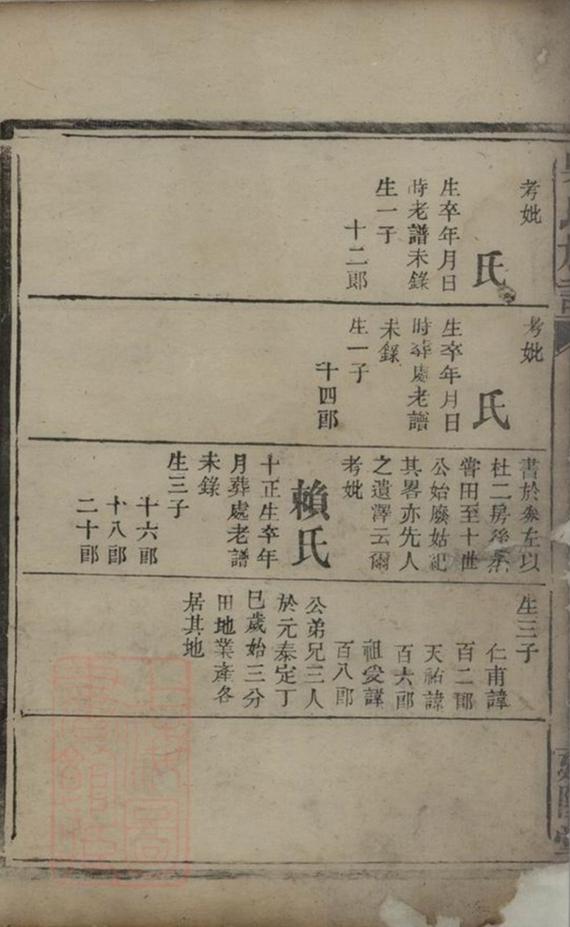 考妣
氏
生卒年月日
時老譜未錄
生一子
十二郎
考妣
氏
生卒年月日
時葬處老譜
未錄
生一子
十四郎
書於㕘左以
杜二房
嘗田至十世
公始廢姑
其畧亦先人
之遺澤云爾
考妣
賴氏
十正生卒年
月葬處老譜
未錄
生三子
十六郎
十八郎
二十郎
生三子
仁甫諱
百二郎
天祐諱
百六郎
祖受諱
百八郎
公弟兄三人
於元泰定丁
巳歲始三分
田地業產各
居其地